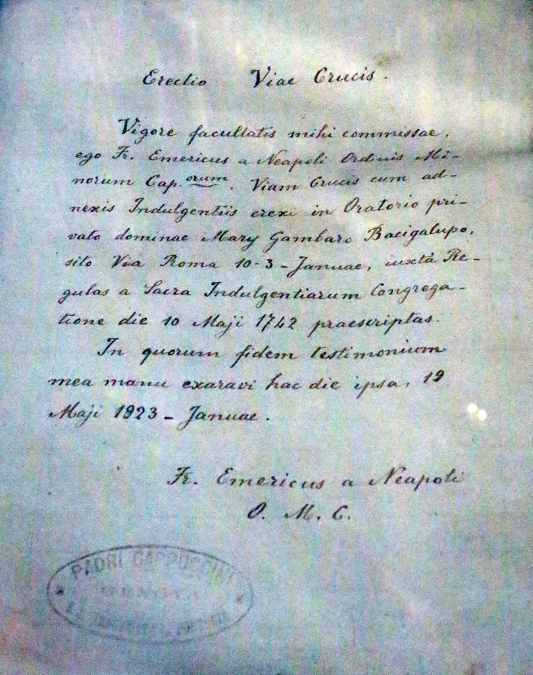 Erectio Viae Crucis.
Vigore facultatis mihi commissae,
ego Fr. Emericus a Neapoli Ordinis Mi-
norum Cap.orum, Viam Crucis cum ad-
nexis Indulgentiis erexi in Oratorio pri-
vato dominae Mary Gambaro Bacigalupo,
sito Via Roma 10-3-Januae, iuxta Re-
gulas a Sacra Indulgentiarum Congrega-
tione die 10 Maji 1742 praescriptas.
In quorum fidem testimonium
mea manu exaravi hac die ipsa, 19
Maji 1923 - Januae.
Fr. Emericus a Neapoli
O. M. C.
PADRI CAPPUCCINI
GENOVA